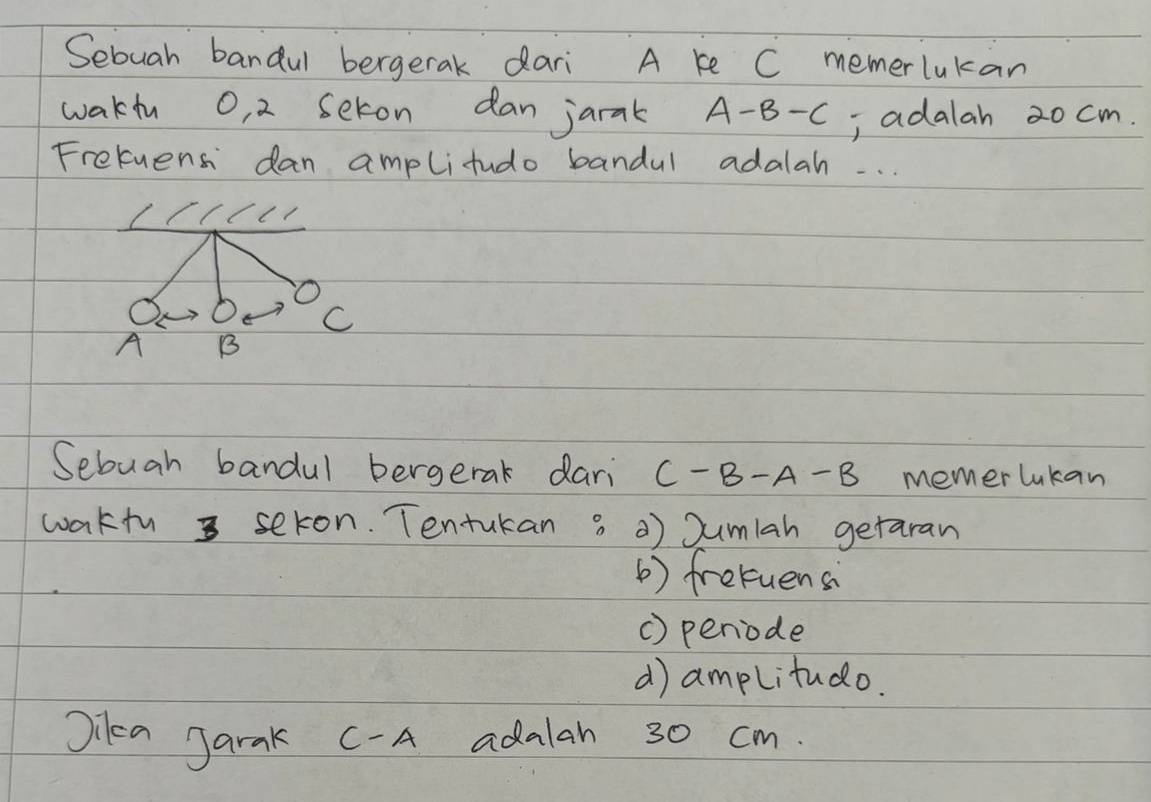 Sebuah bandul bergerak dari A ke C memerlukan
waktu 0,2 sekon dan jarak A-B-C ; adalah 20 cm.
Frekuensi dan amplitudo bandul adalah ...
C
A B
Sebuah bandul bergerak dari C-B-A-B memerlukan
waktu 3 sekon. Tentukan : a) Jumlah getaran
b) frekuensi
c) periode
d) amplitudo.
Jika Jarak C-A adalah 30 cm.